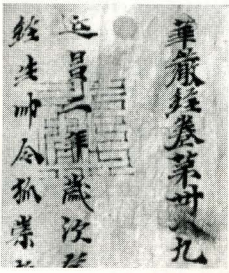 華嚴經卷第卅九
延昌二年歲次
經生帥令狐崇